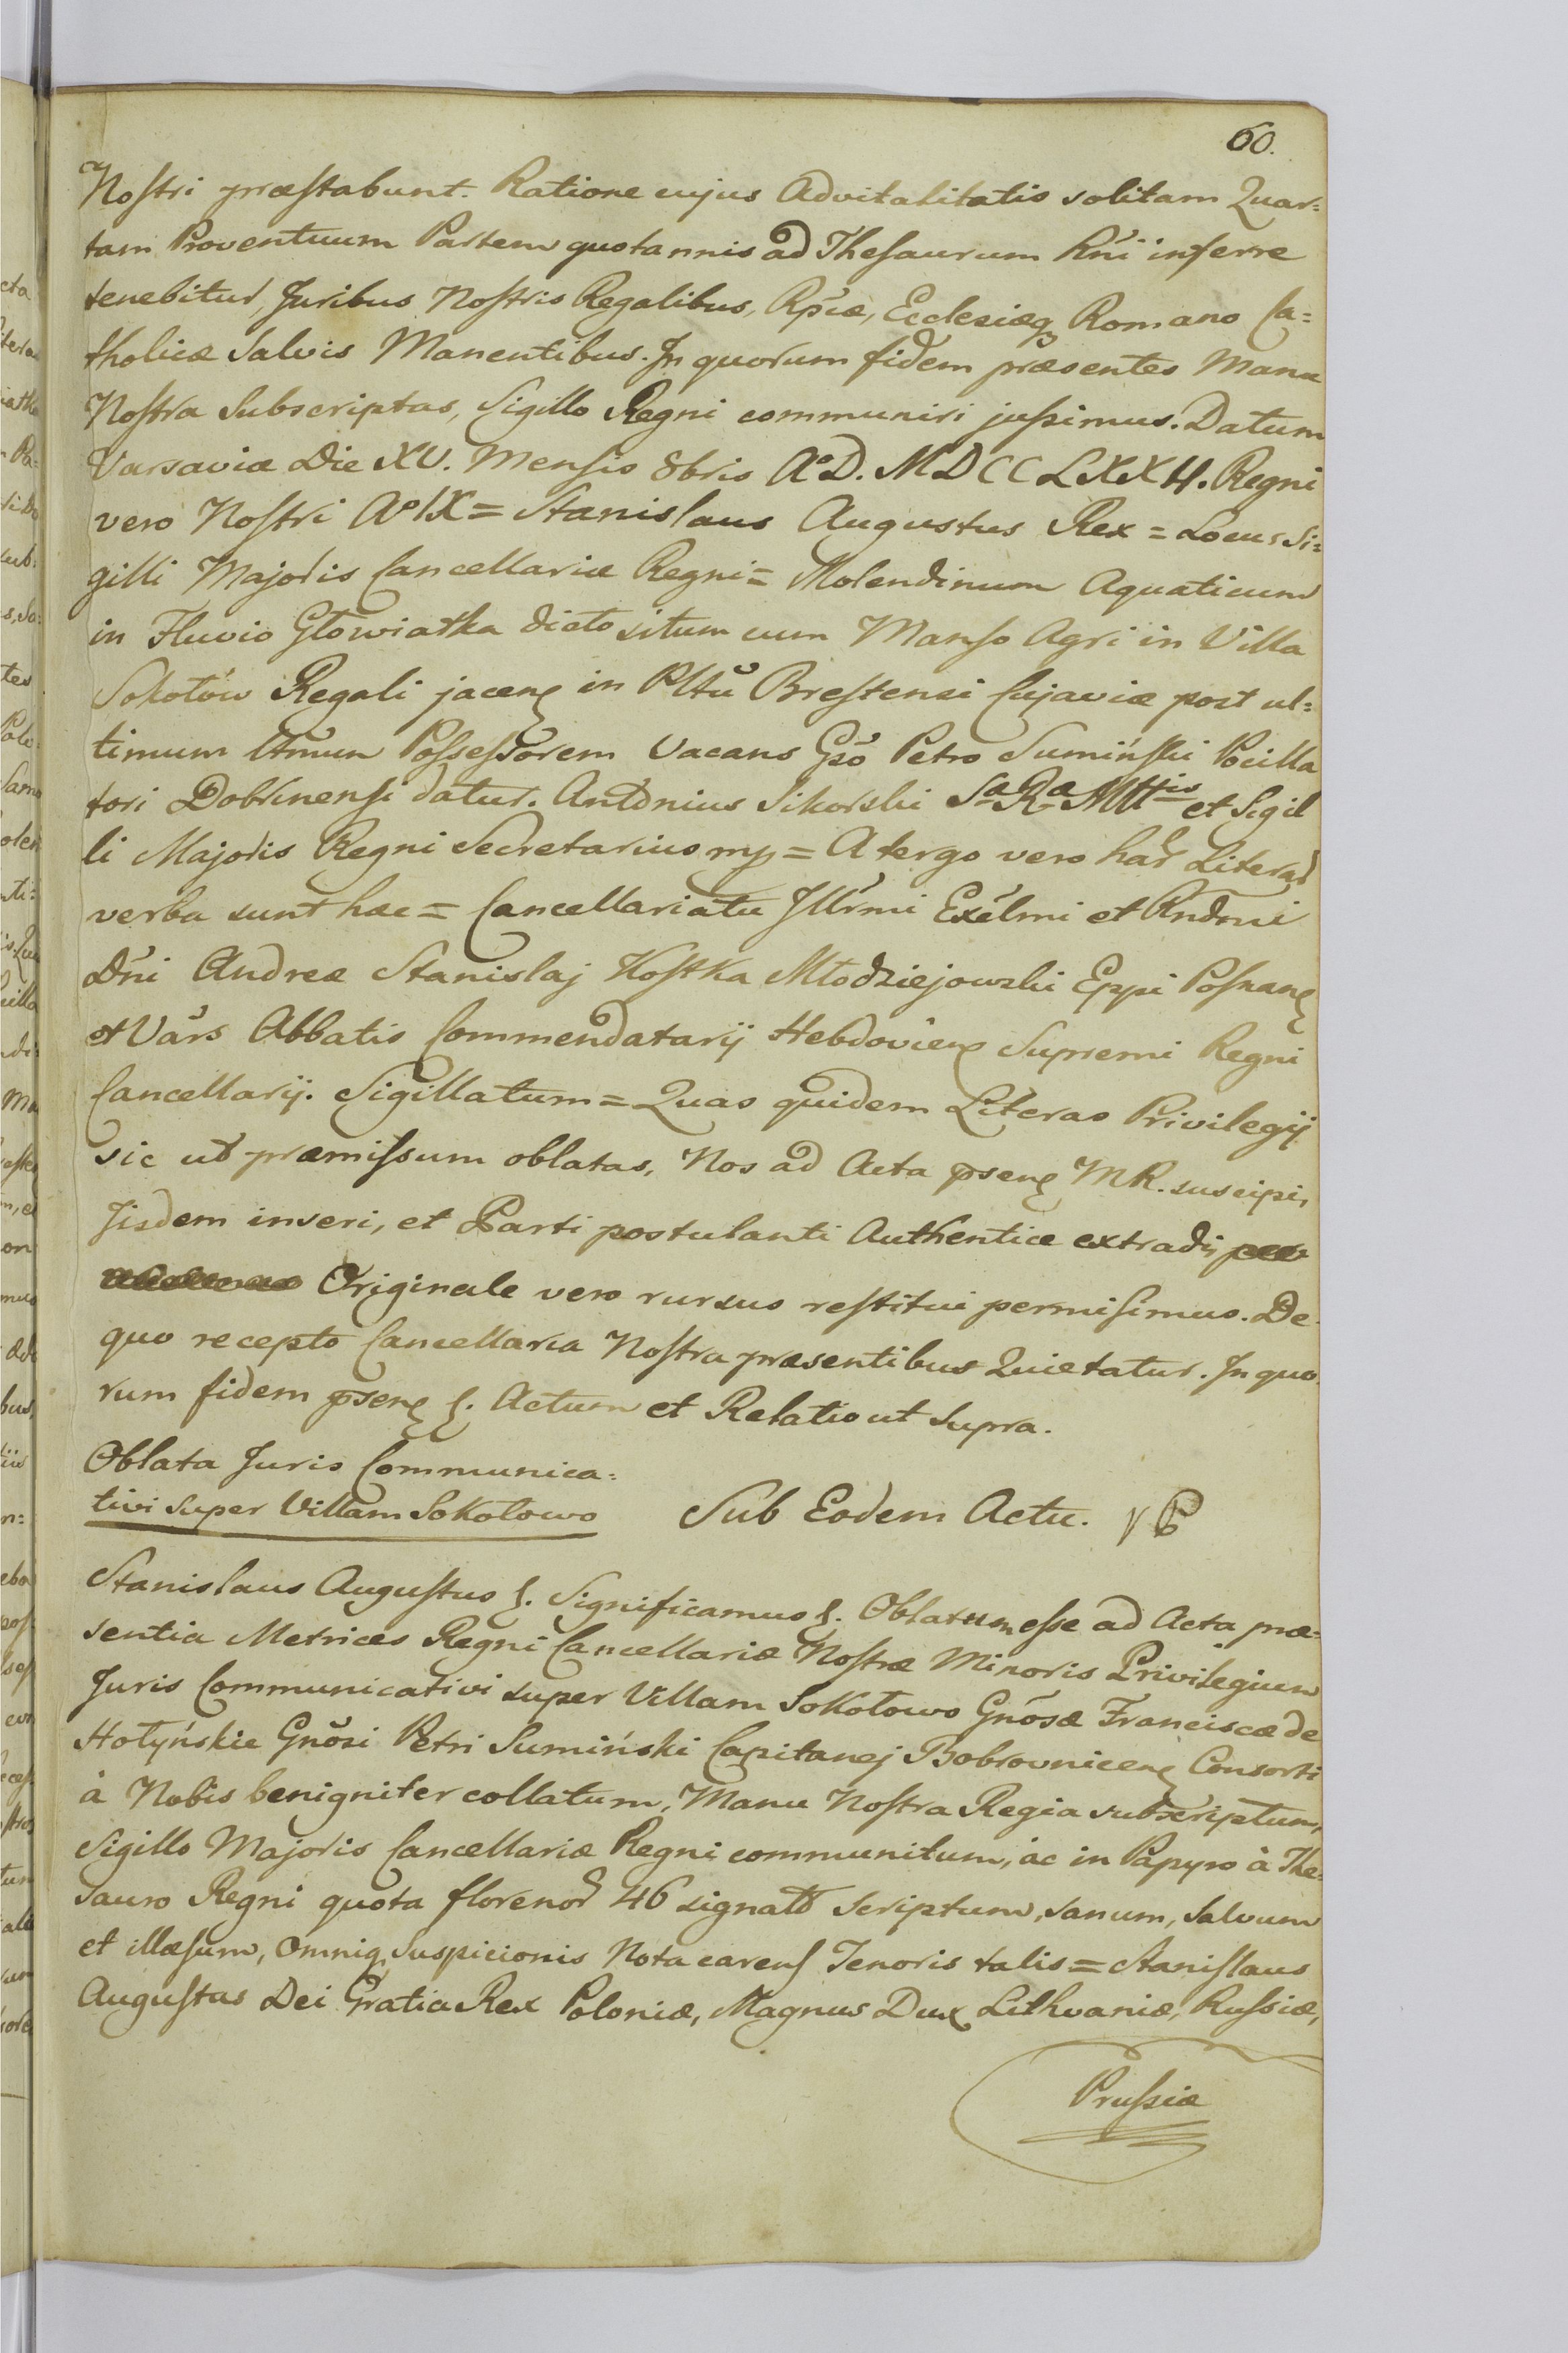 60.
Nostri præstabunt. Ratione cujus Advitalitatis solitam Quar=
tam Proventuum Partem quotannis ad Thesaurum Rni inferre
tenebitur, Juribus Nostris Regalibus, Rpcæ, Ecclesiæq Romano Ca=
tholicæ Salvis Manentibus. In quorum fidem præsentes Manu
Nostra Subscriptas, Sigillo Regni communiri jussimus. Datum
Varsaviæ Die XV. Mensis 8bris A°D. MDCCLXXII. Regni
vero Nostri A° IX = Stanislaus Augustus Rex = Locus Si=
gilli Majoris Cancellariæ Regni = Molendinum Aquaticum
in Fluvio Głowiatka dicto situm cum Manso Agri in Villa
Sokołów Regali jacen in Pltu Brestensi Cujaviæ post ul=
timum Possessorem Vacans Gso Petro Sumiński Pocilla
tori Dobrinensi datur. Antonius Sikorski Sa Ra Mttis et Sigil
li Majoris Regni Secretarius mp = A tergo vero har Literar
verba sunt hæc = Cancellariatu Illrmi Exclmi et Rndmi
Dni Andreæ Stanislaj Kostka Młodziejowski Eppi Posnan
et Vars Abbatis Commendatarij Hebdovien Supremi Regni
Cancellarij. Sigillatum = Quas quidem Literas Privilegij
sic ut præmissum oblatas, Nos ad Acta psen MR. suscipi,
Iisdem inseri, et Parti postulanti Authentice extradi,
Originale vero rursus restitui permisimus. De
quo recepto Cancellaria Nostra præsentibus Quietatur. In quo
rum fidem psen &. Actum et Relatio ut supra.
Oblata Juris Communica=
tivi super Villam Sokołowo Sub Eodem Actu.
Stanislaus Augustus &. Significamus &. Oblatum esse ad Acta præ=
sentia Metrices Regni Cancellariæ Nostræ Minoris Privilegium
Juris Communicativi super Villam Sokołowo Gnosæ Franciscæ de
Hołyńskie Gnosi Petri Sumiński Capitanej Bobrovnicen Consorti
à Nobis benigniter collatum, Manu Nostra Regia subscriptum,
Sigillo Majoris Cancellariæ Regni communitum, ac in Papyro à The=
sauro Regni quota florenor 46 signato Scriptum, sanum, Salvum
et illæsum, Omniq Suspicionis Nota carens Tenoris talis = Stanislaus
Augustus Dei Gratia Rex Poloniæ, Magnus Dux Lithvaniæ, Russiæ,
Prussiæ